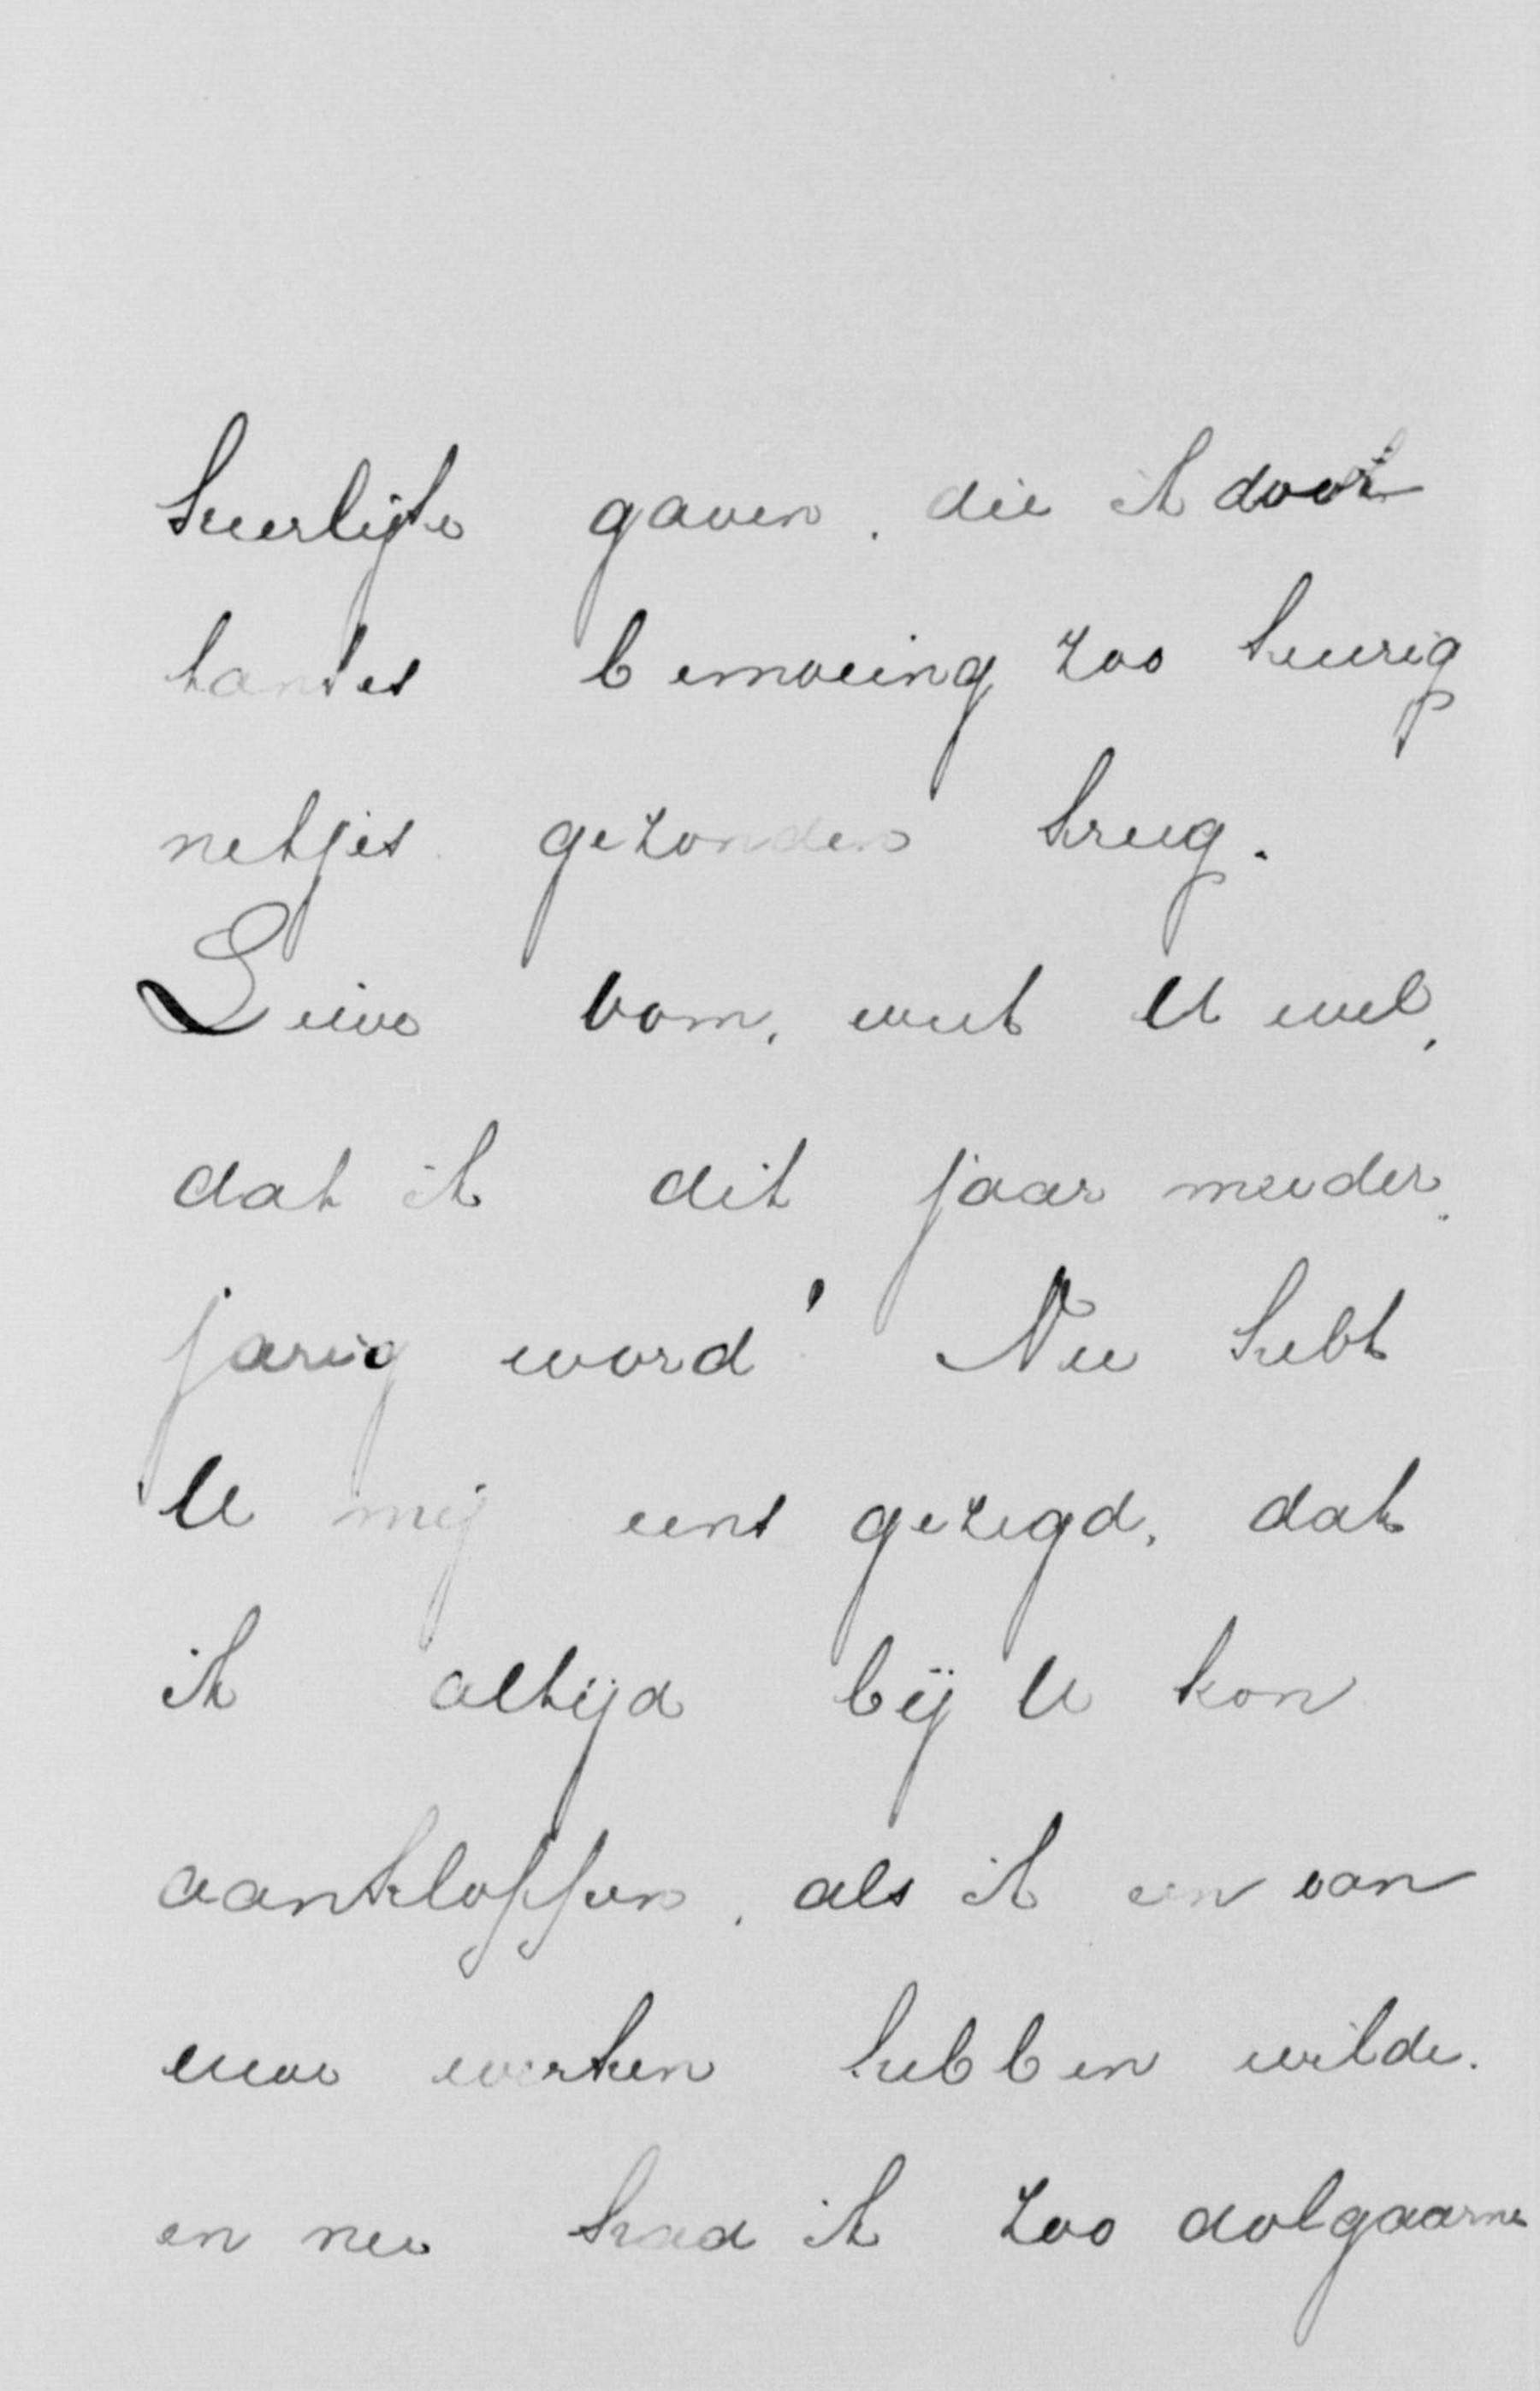 heerlijke gaven, die ik door
tantes bemoeiing zoo keurig
netjes gezonden kreeg.
Lieve oom, weet U wel,
dat ik dit jaar meerder-
jarig word? Nu hebt
U mij eens gezegd, dat
ik altijd bij U kon
aankloppen, als ik een van
uwe werken hebben wilde.
en nu had ik zoo dolgaarne